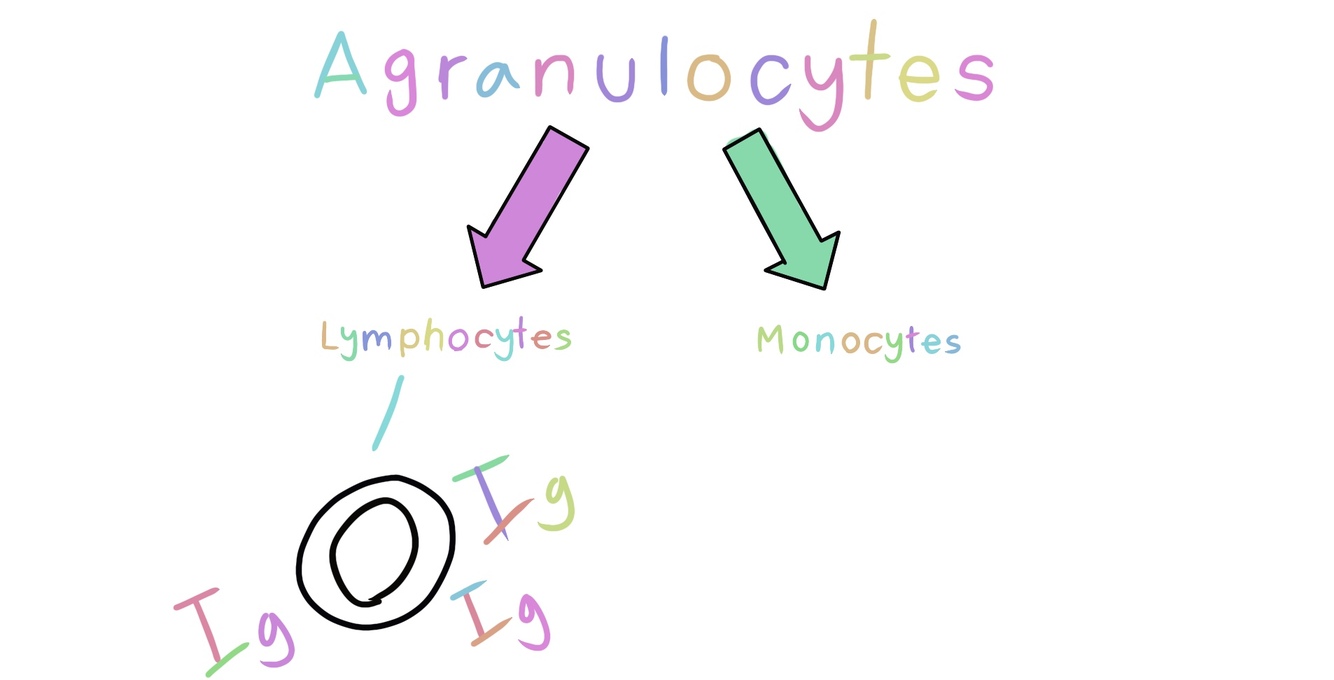 Agranulocytes
Lymphocytes
Monocytes
Ig
Ig
Ig